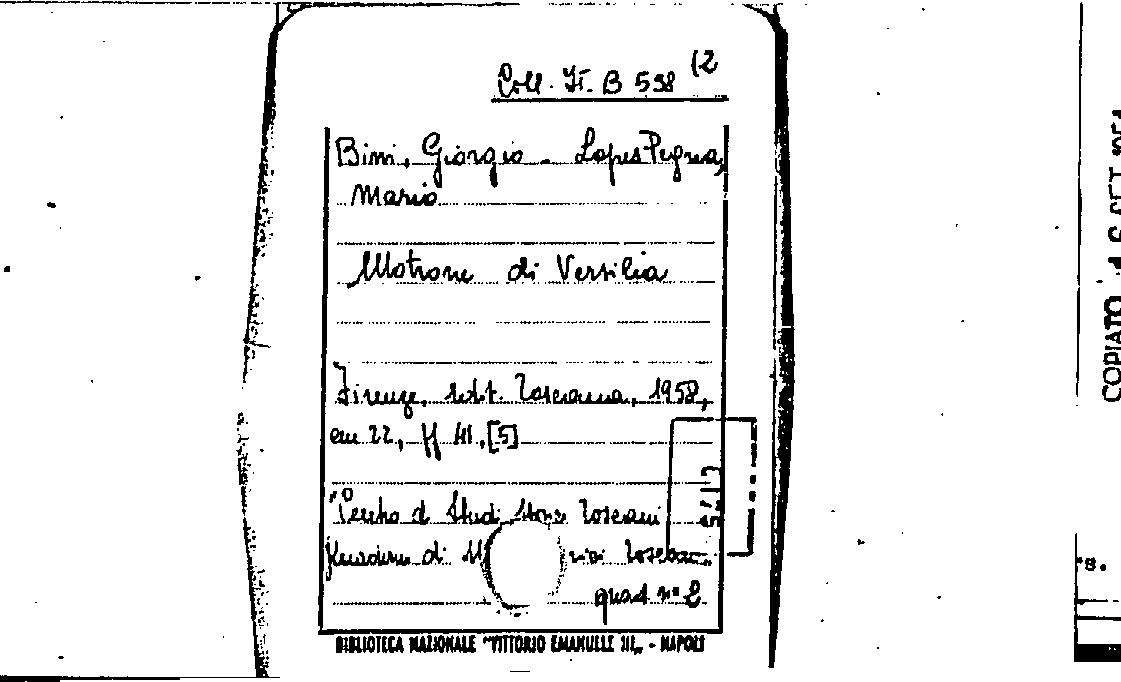 Coll. It. B 598 (2
Bini, Giorgio - Lopes Pegna,
Mario
Matrone di Versilia
Firenze, Toscana, 1958,
cm 22, pp 41, [5]
Centro d Studi Storici Toscani
Quaderni di
quad nº 2
BIBLIOTECA NAZIONALE "VITTORIO EMANUELE III„ - NAPOLI
COPIATO